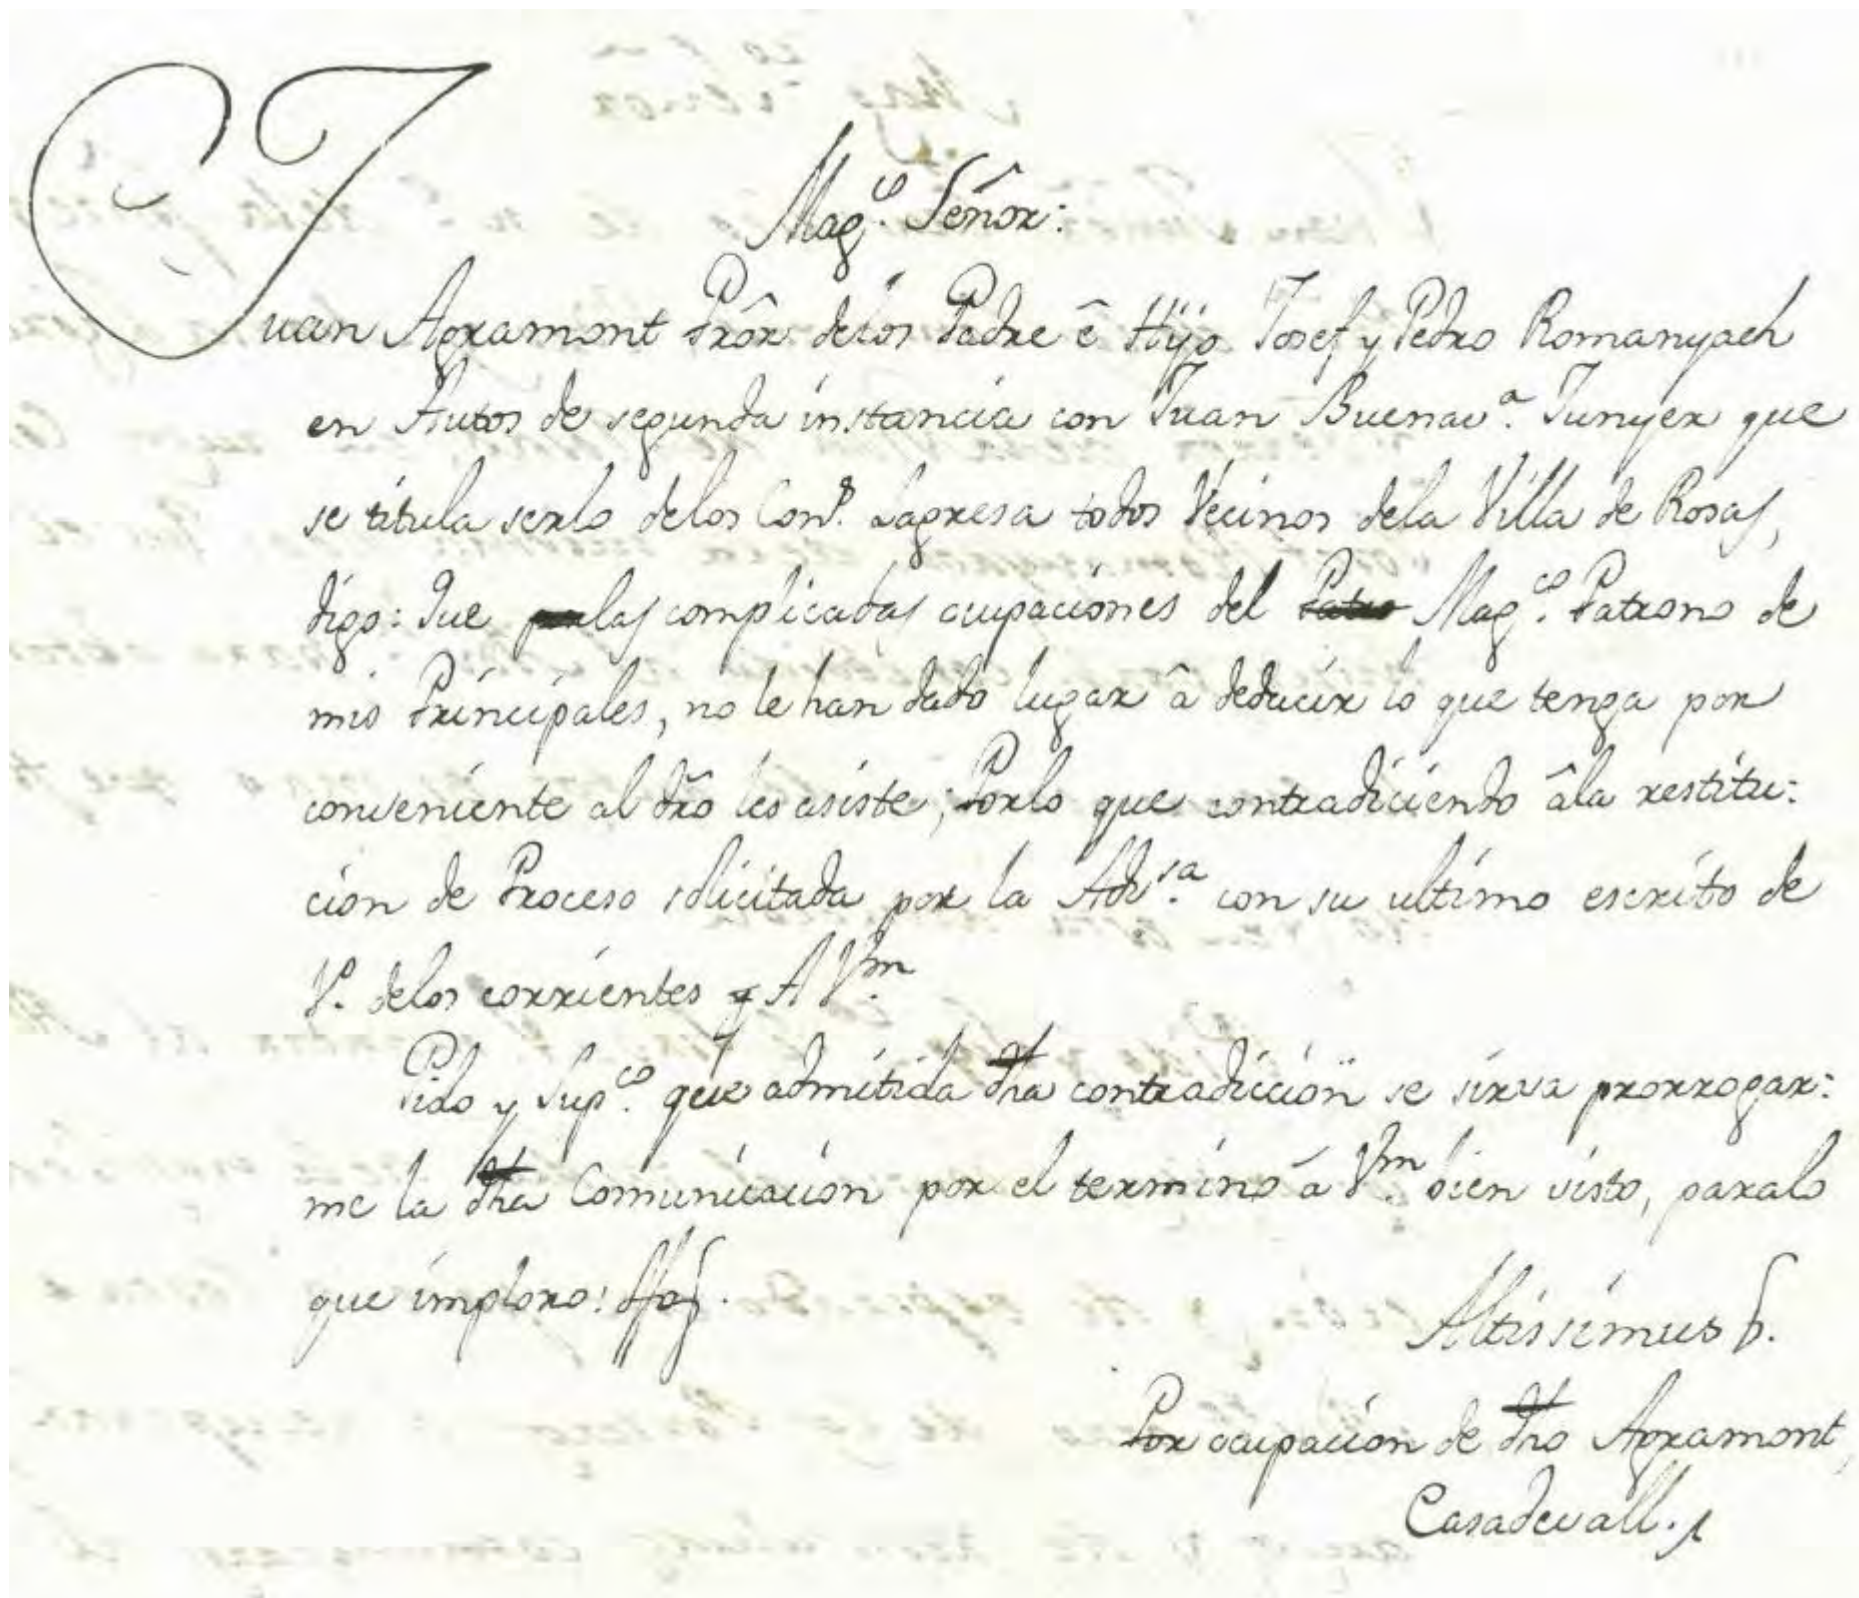 Mag.co Señór:
Juan Agramont Prôr delos Padre ê Hijo Josef y Pedro Romanyach
en Autos de segunda instancia con Juan Buenav.a Junyer que
se titula serlo delos Con.s Lagresa todos Vecinos dela Villa de Rosas,
digo: Que las complicadas ocupaciones del Mag.co Patrono de
mis Principales, no le han dado lugar â deducir lo que tenga por
conveniente al dr̃o les asiste; Porlo que contradiciendo âla restitu:
cion de Proceso solicitada por la Adv.sa con su ultimo escrito de
delos corrientes A V.m
Pido y Sup.co que admitida dha contradicción se sirva prorrogar:
me la dha Comunicacion por el termino á V.m bien visto, paralo
que imploro:
Altissimus
Por ocupacion de dho Agramont,
Casadevall.